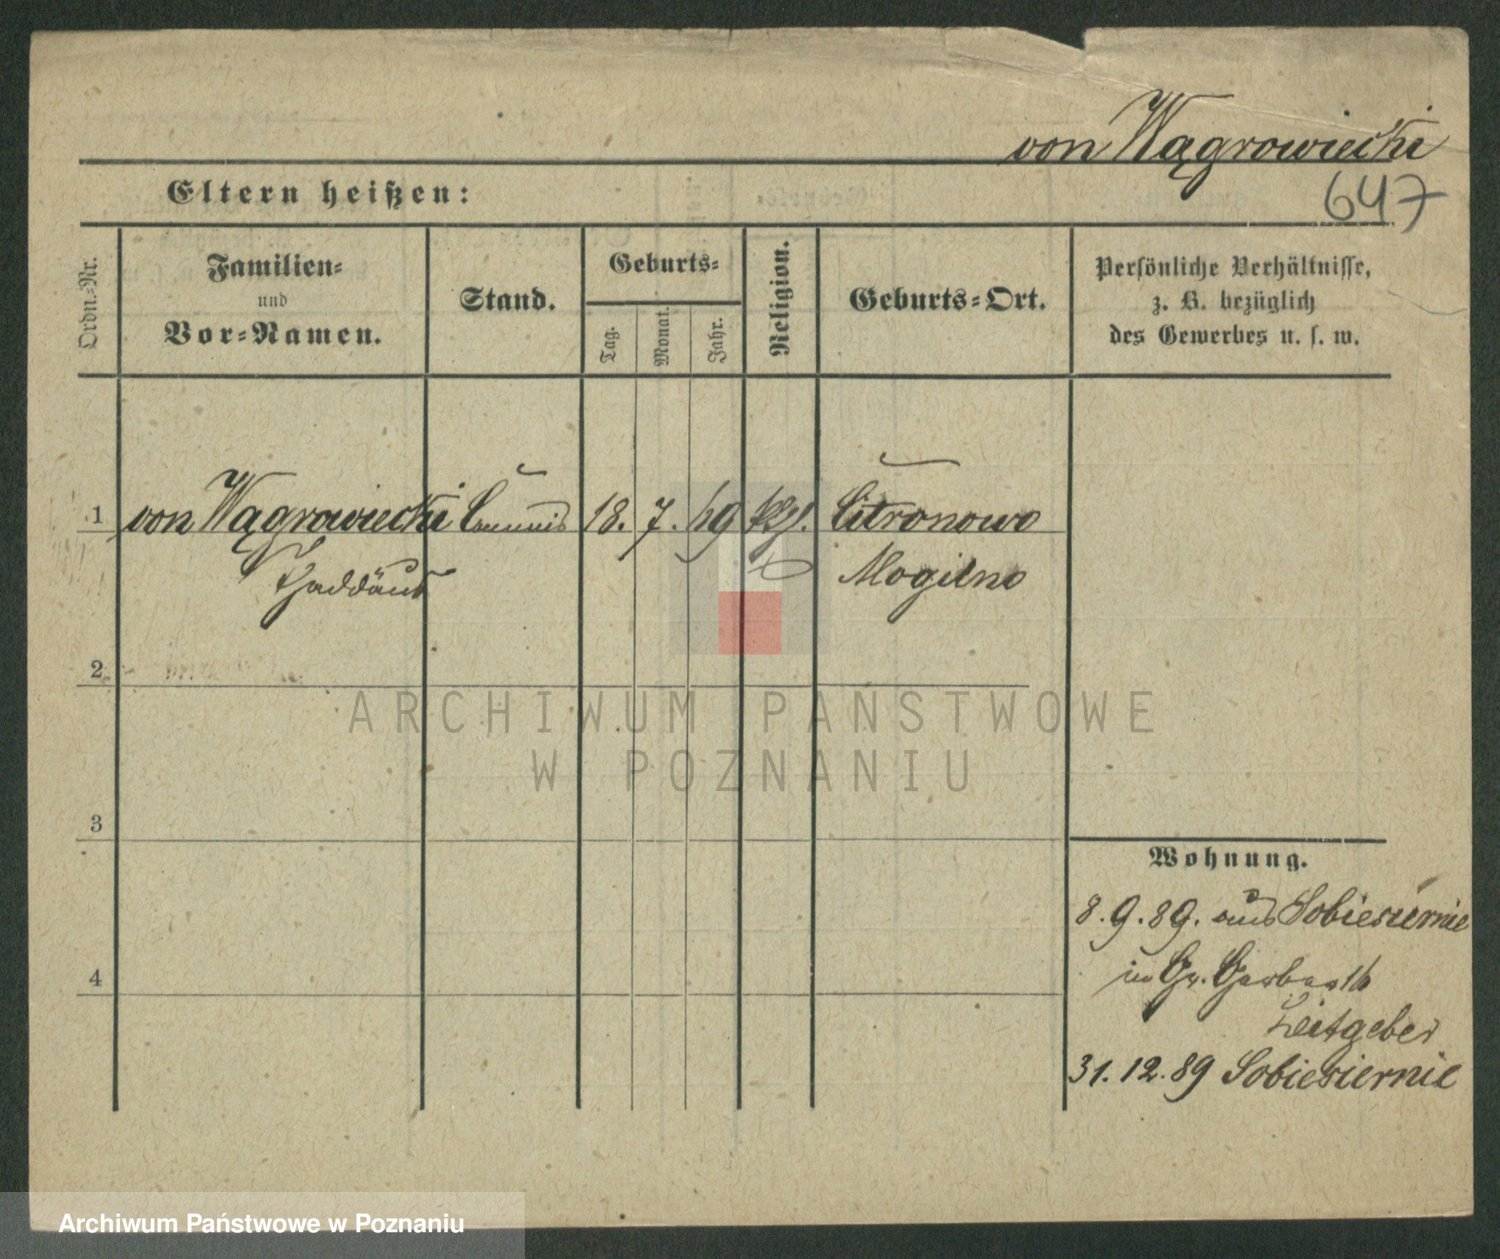 von Wągrowiecki
Eltern heißen:
647
Ordn.-Nr.
Familien-
und
Vor-Namen.
Stand.
Geburts-
Tag.
Monat.
Jahr.
Religion.
Geburts-Ort.
Persönliche Verhältnisse,
z. B. bezüglich
des Gewerbes u. s. w.
1 von Wągrowiecki Commis 18. 7. 69 kth. Citronowo
Thaddäus Mogilno
2
ARCHIWUM PAŃSTWOWE
W POZNANIU
3
Wohnung.
8.9.89. aus Sobiesiernie
in Gr. Gerberstr 
4
Leitgeber
31.12.89 Sobiesiernie
Archiwum Państwowe w Poznaniu